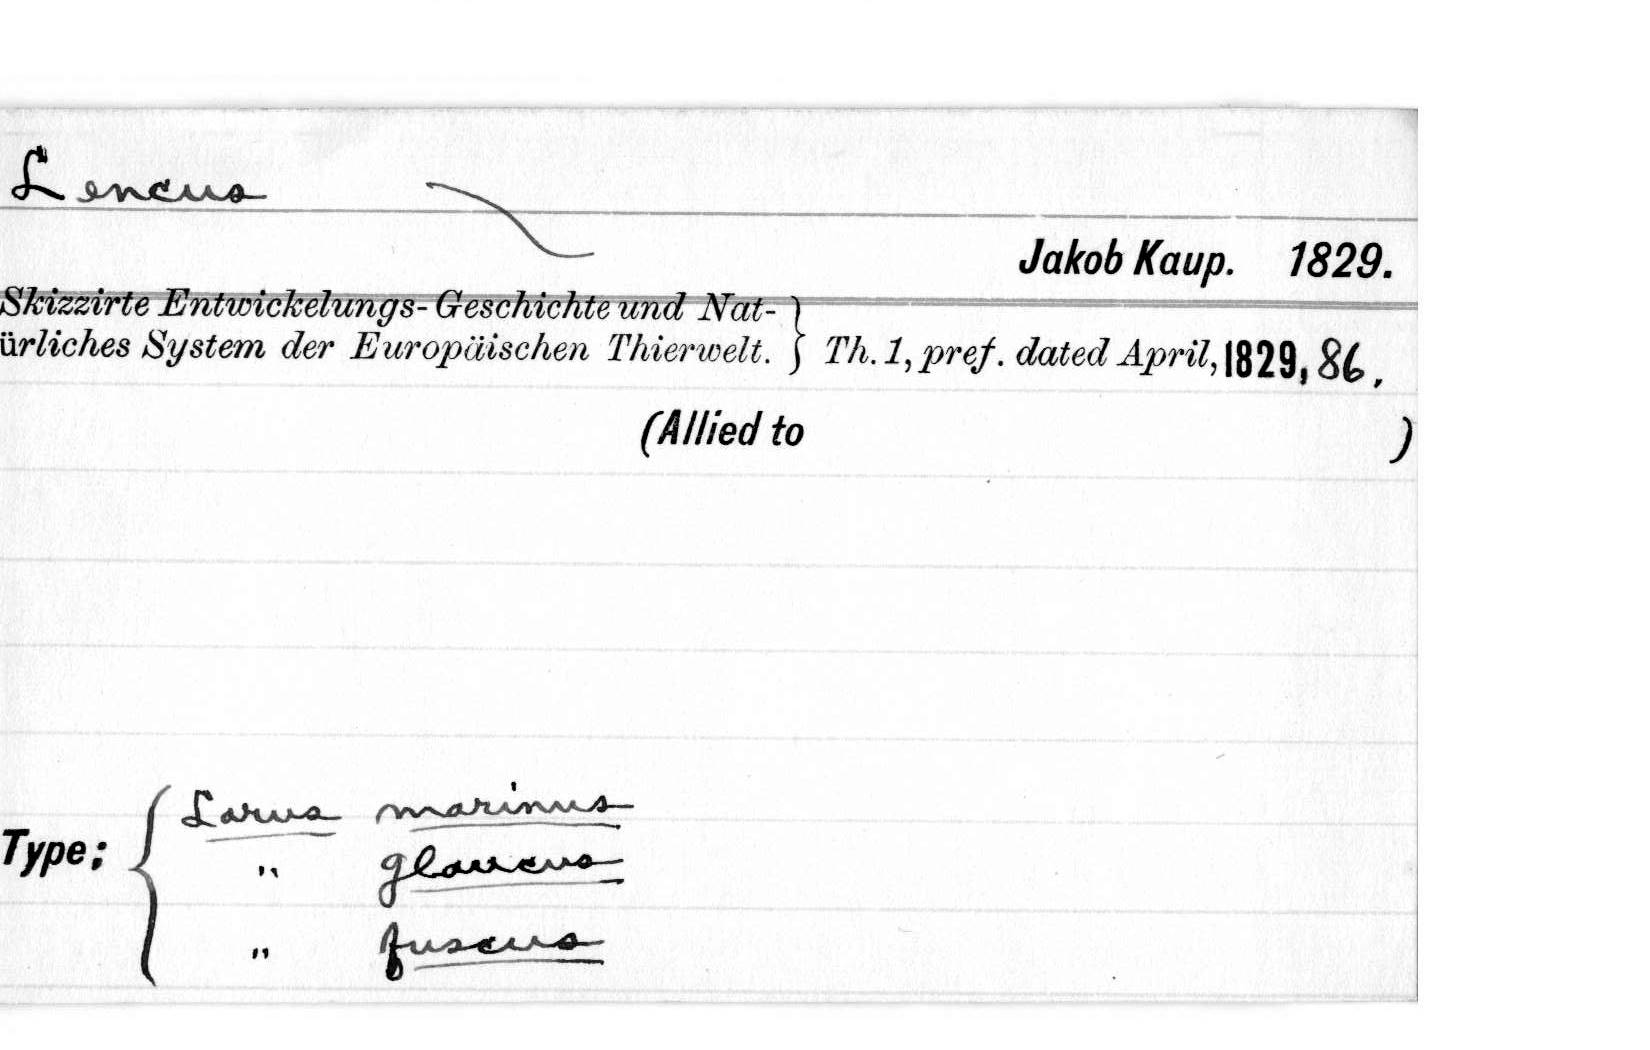 Leucus
Jakob Kaup. 1829.
Skizzirte Entwickelungs-Geschichte und Nat-
ürliches System der Europäischen Thierwelt. } Th. 1, pref. dated April, 1829, 86.
(Allied to )
Type: { Larus marinus
" glaucus
" fuscus